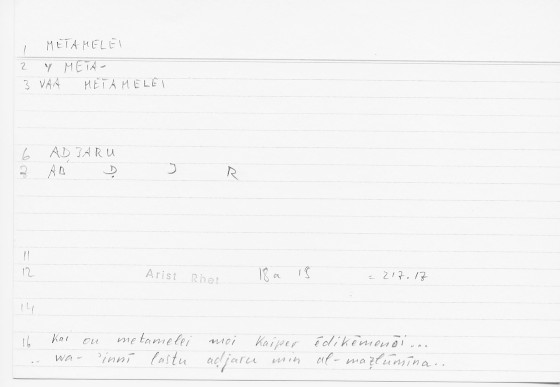 1 METAMELEI
2 Y META-
3 VAA METAMELEI
6 AḌJARU
AB Ḍ J R
11
12 Arist Rhet 18a 15 = 217.17
14
16 kai ou metamelei moi kaiper ēdikēmenōi...
.. wa-'innī lastu aḍjaru min al-maẓlūmīna..